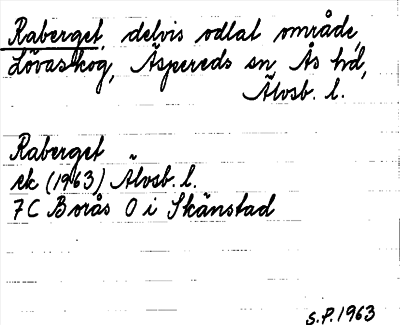 Raberget, delvis odlat område,
Lövaskog, Äspereds sn, Ås hd,
Älvsb. l.
Raberget
ek (1963) Älvsb. l.
7C Borås O i Skänstad
S.P. 1963